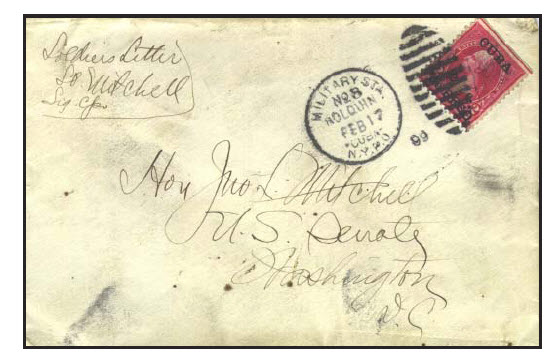 Soldiers Letter
Mitchell
Sig Cps
MILITARY STA.
No 8
HOLQUIN
FEB 17
CUBA
N.Y.P.O.
99
CUBA
Hon Jno L. Mitchell
U.S. Senate
Washington
D.C